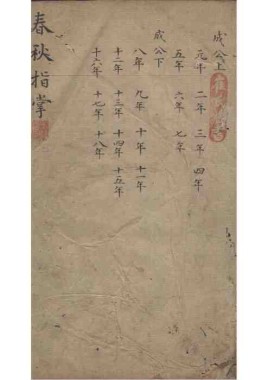 成公上
元年 二年 三年 四年
五年 六年 七年
成公下
八年 九年 十年 十一年
十二年 十三年 十四年 十五年
十六年 十七年 十八年
春秋指掌